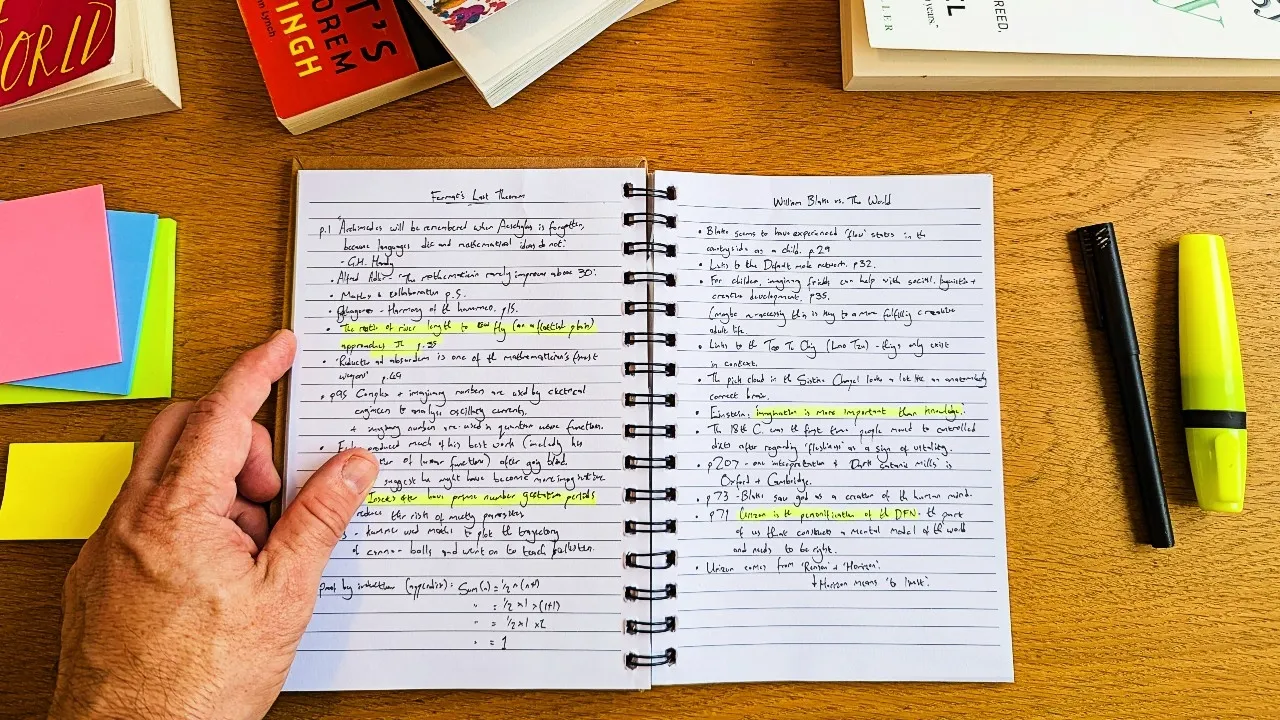 ORLD
T'S
OREM
INGH
hn Lynch
EL
years"
REED,
LER
Fermat's Last Theorem
p.1 "Archimedes will be remembered when Aeschylus is forgotten,
because languages die and mathematical ideas do not."
- G.H. Hardy
• Alfred Adler "The mathematician rarely improves above 30".
• Maths & collaboration p.5.
- Harmony of the hammers. p15.
• The ratio of river length to fly (on a flat plain)
approaches π p.
• 'Reductio ad absurdum is one of the mathematician's finest
weapons' p.49
• p95 Complex + imaginary numbers are used by electrical
engineers to analyse oscillating currents.
+ imaginary numbers are used in quantum wave function.
produced much of his best work (including his
of lunar functions) after going blind.
suggest he might have become more imaginative.
Insects often have prime number gestation periods
reduce the risk of meeting parasites
used maths to plot the trajectory
of cannon-balls and went on to teach
proof by induction (appendix): Sum(n) = 1/2 n (n+1)
" = 1/2 x 1 x (1+1)
" = 1/2 x 1 x 2
" = 1
William Blake vs. The World
• Blake seems to have experienced 'flow' states in the
countryside as a child. p.29
• Links to the Default mode network. p32.
• For children, imaginary friends can help with social, linguistic +
creative development. p35.
(maybe accessing this is key to a more fulfilling creative
adult life.
• Links to the Tao Te Ching (Lao Tzu) - things only exist
in context.
• The pink cloud in the Sistine Chapel looks a lot like an anatomically
correct brain.
• Einstein, imagination is more important than knowledge.
• The 18th C. was the first time people moved to controlled
diets after regarding 'plumpness' as a sign of vitality.
• p207 - one interpretation of 'Dark Satanic Mills' is
Oxford + Cambridge.
• p73 - Blake saw god as a creation of the human mind.
• p71 Urizon is the personification of the DFN - the part
of us that constructs a mental model of the world
and needs to be right.
• Urizon comes from 'Reason' + 'Horizon'.
Horizon means 'to limit'.